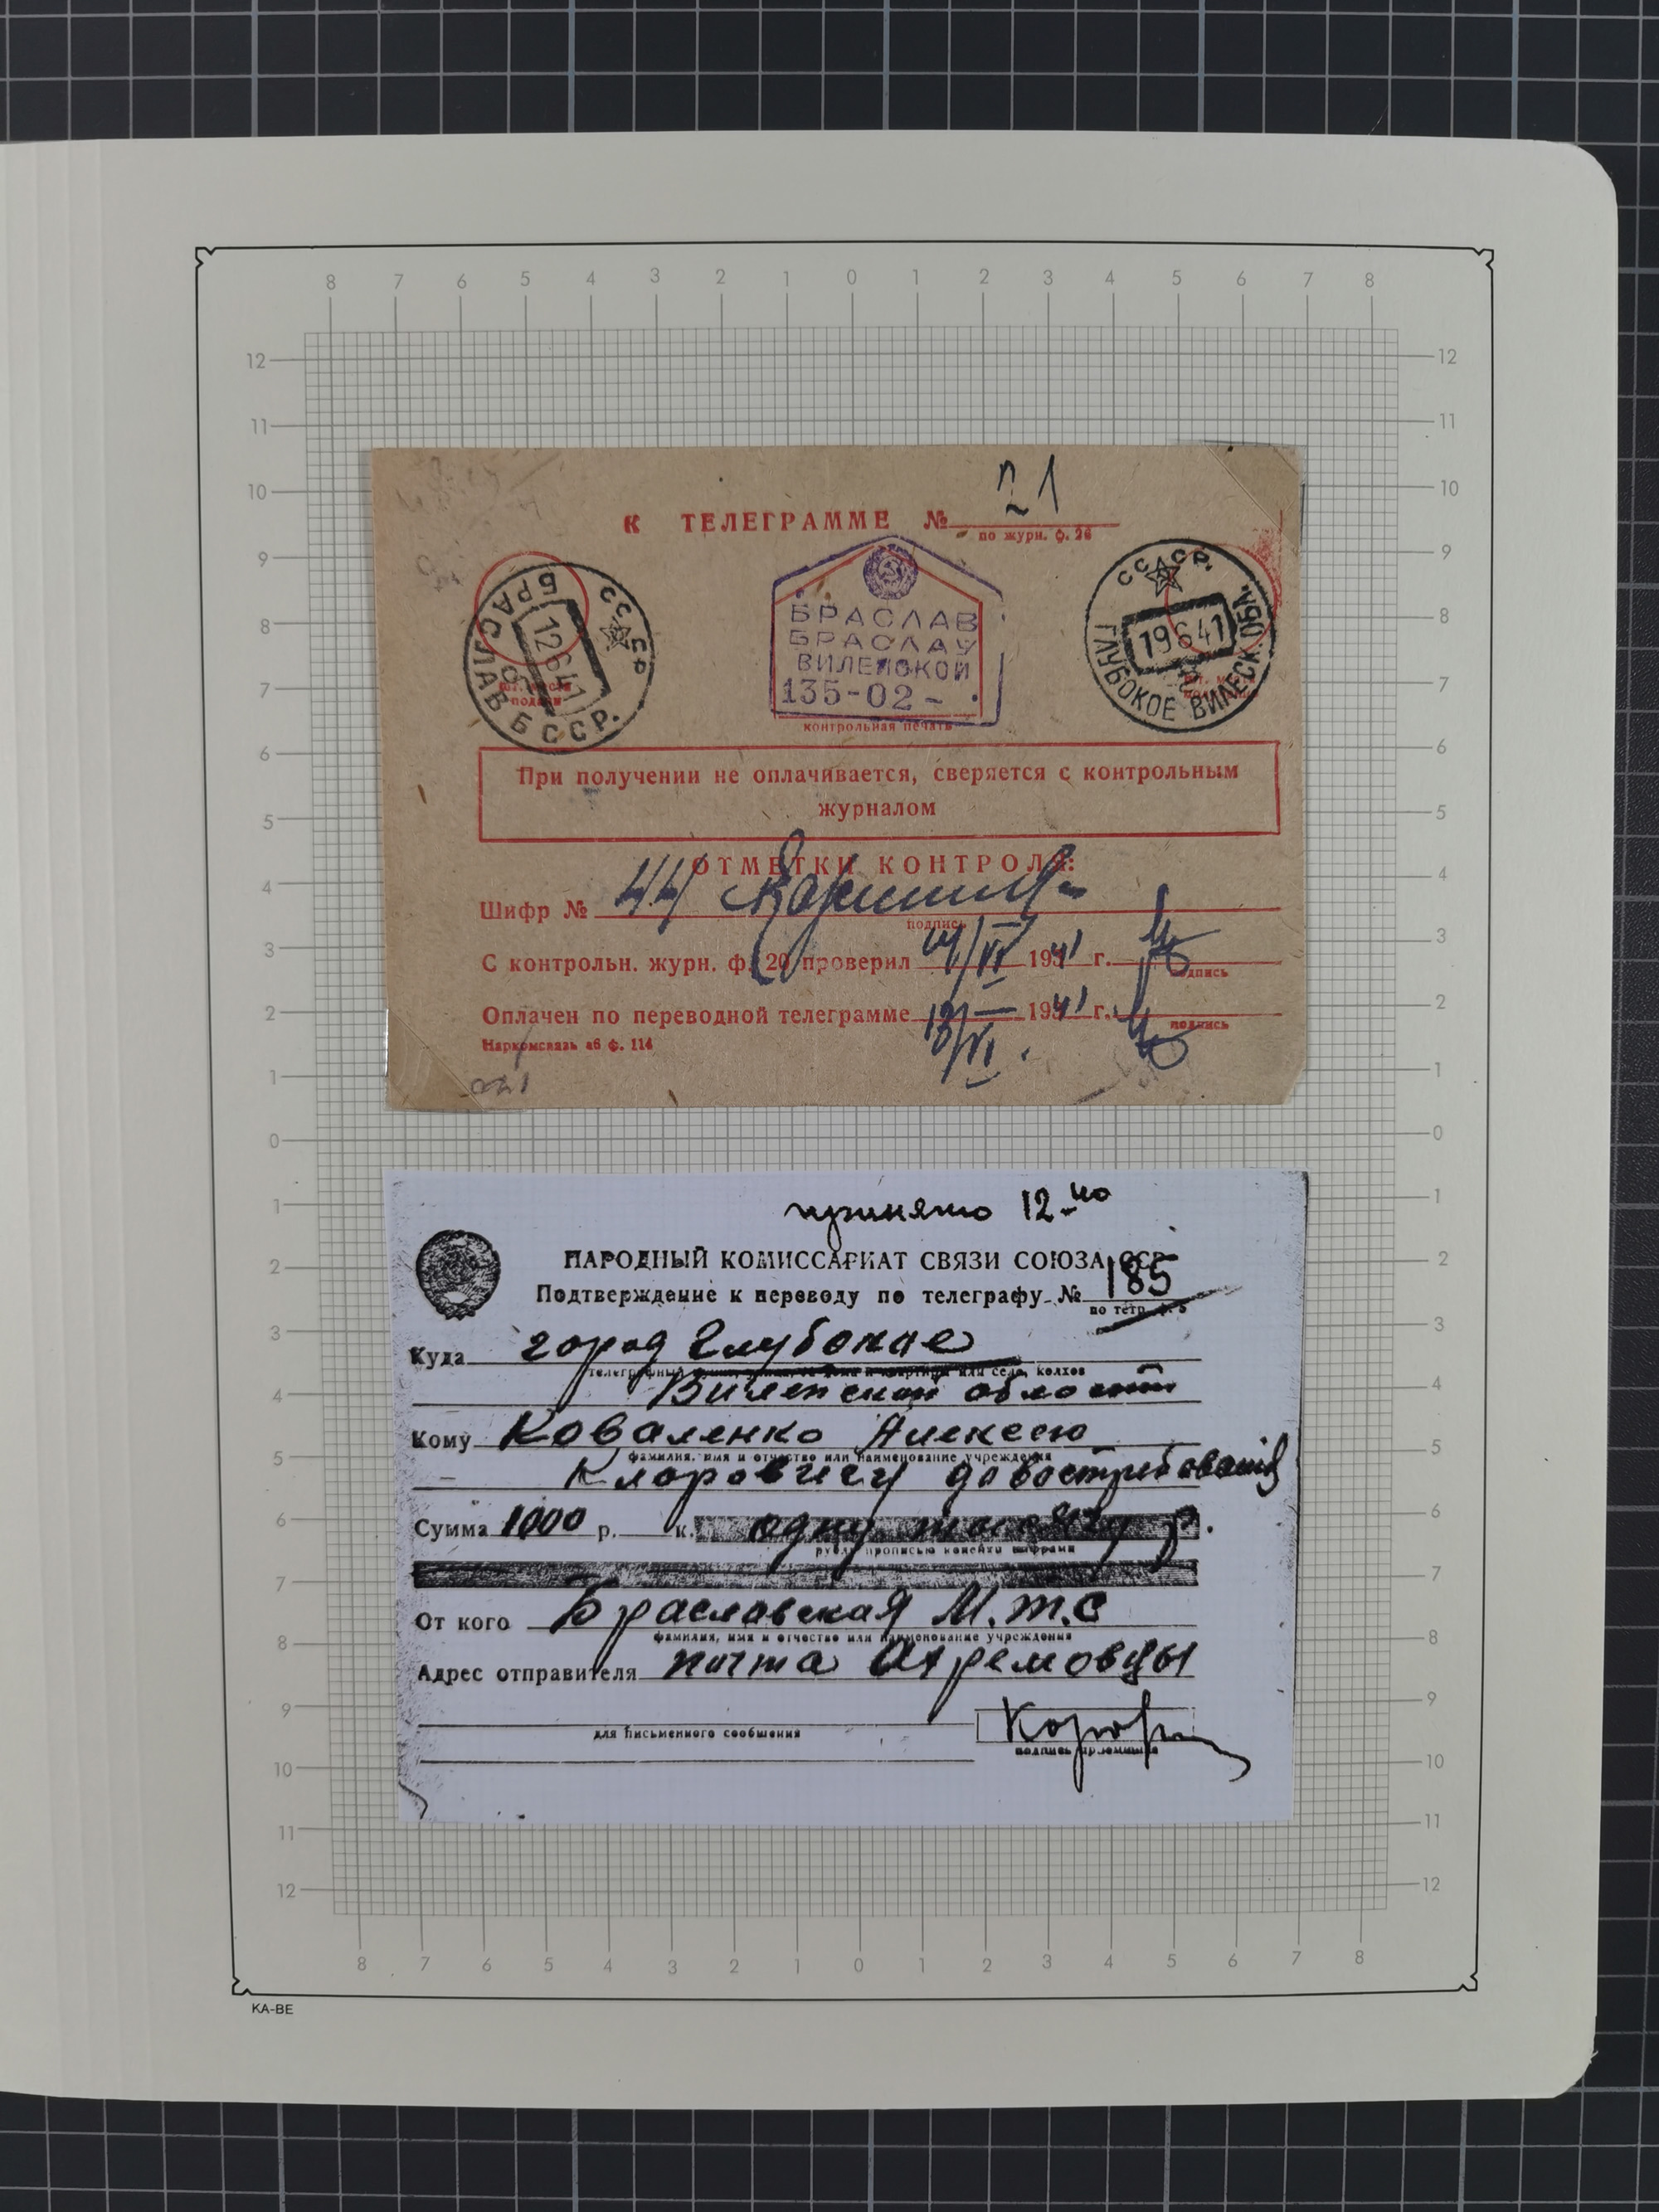 8 7 6 5 4 3 2 1 0 1 2 3 4 5 6 7 8
12 11 10 9 8 7 6 5 4 3 2 1 0 1 2 3 4 5 6 7 8 9 10 11 12
К ТЕЛЕГРАММЕ № 21
по журн. ф. 26
СССР
БРАСЛАВ БССР.
12 6 41
БРАСЛАВ
БРАСЛАУ
ВИЛЕЙСКОЙ
135-02-
контрольная печать
СССР.
19 6 41
ГЛУБОКОЕ ВИЛЕЙСК. ОБЛ.
При получении не оплачивается, сверяется с контрольным
журналом
ОТМЕТКИ КОНТРОЛЯ:
Шифр № 44
подпись
С контрольн. журн. ф. 20 проверил 1941 г.
подпись
Оплачен по переводной телеграмме 1941 г.
подпись
Наркомсвязь ф. 114
принято 12-40
НАРОДНЫЙ КОМИССАРИАТ СВЯЗИ СОЮЗА ССР
Подтверждение к переводу по телеграфу № 185
по тетр. ф. 5
Куда город Глубокае
Вилейской области
Кому Коваленко Алексею
фамилия, имя и отчество или наименование учреждения
довостребования
Сумма 1000 р. к. одну тысячу р.
рубли прописью копейки цифрами
От кого Браславская М.т.с
фамилия, имя и отчество или наименование учреждения
Адрес отправителя почта Ахремовцы
для письменного сообщения
подпись приемщика
8 7 6 5 4 3 2 1 0 1 2 3 4 5 6 7 8
KA-BE